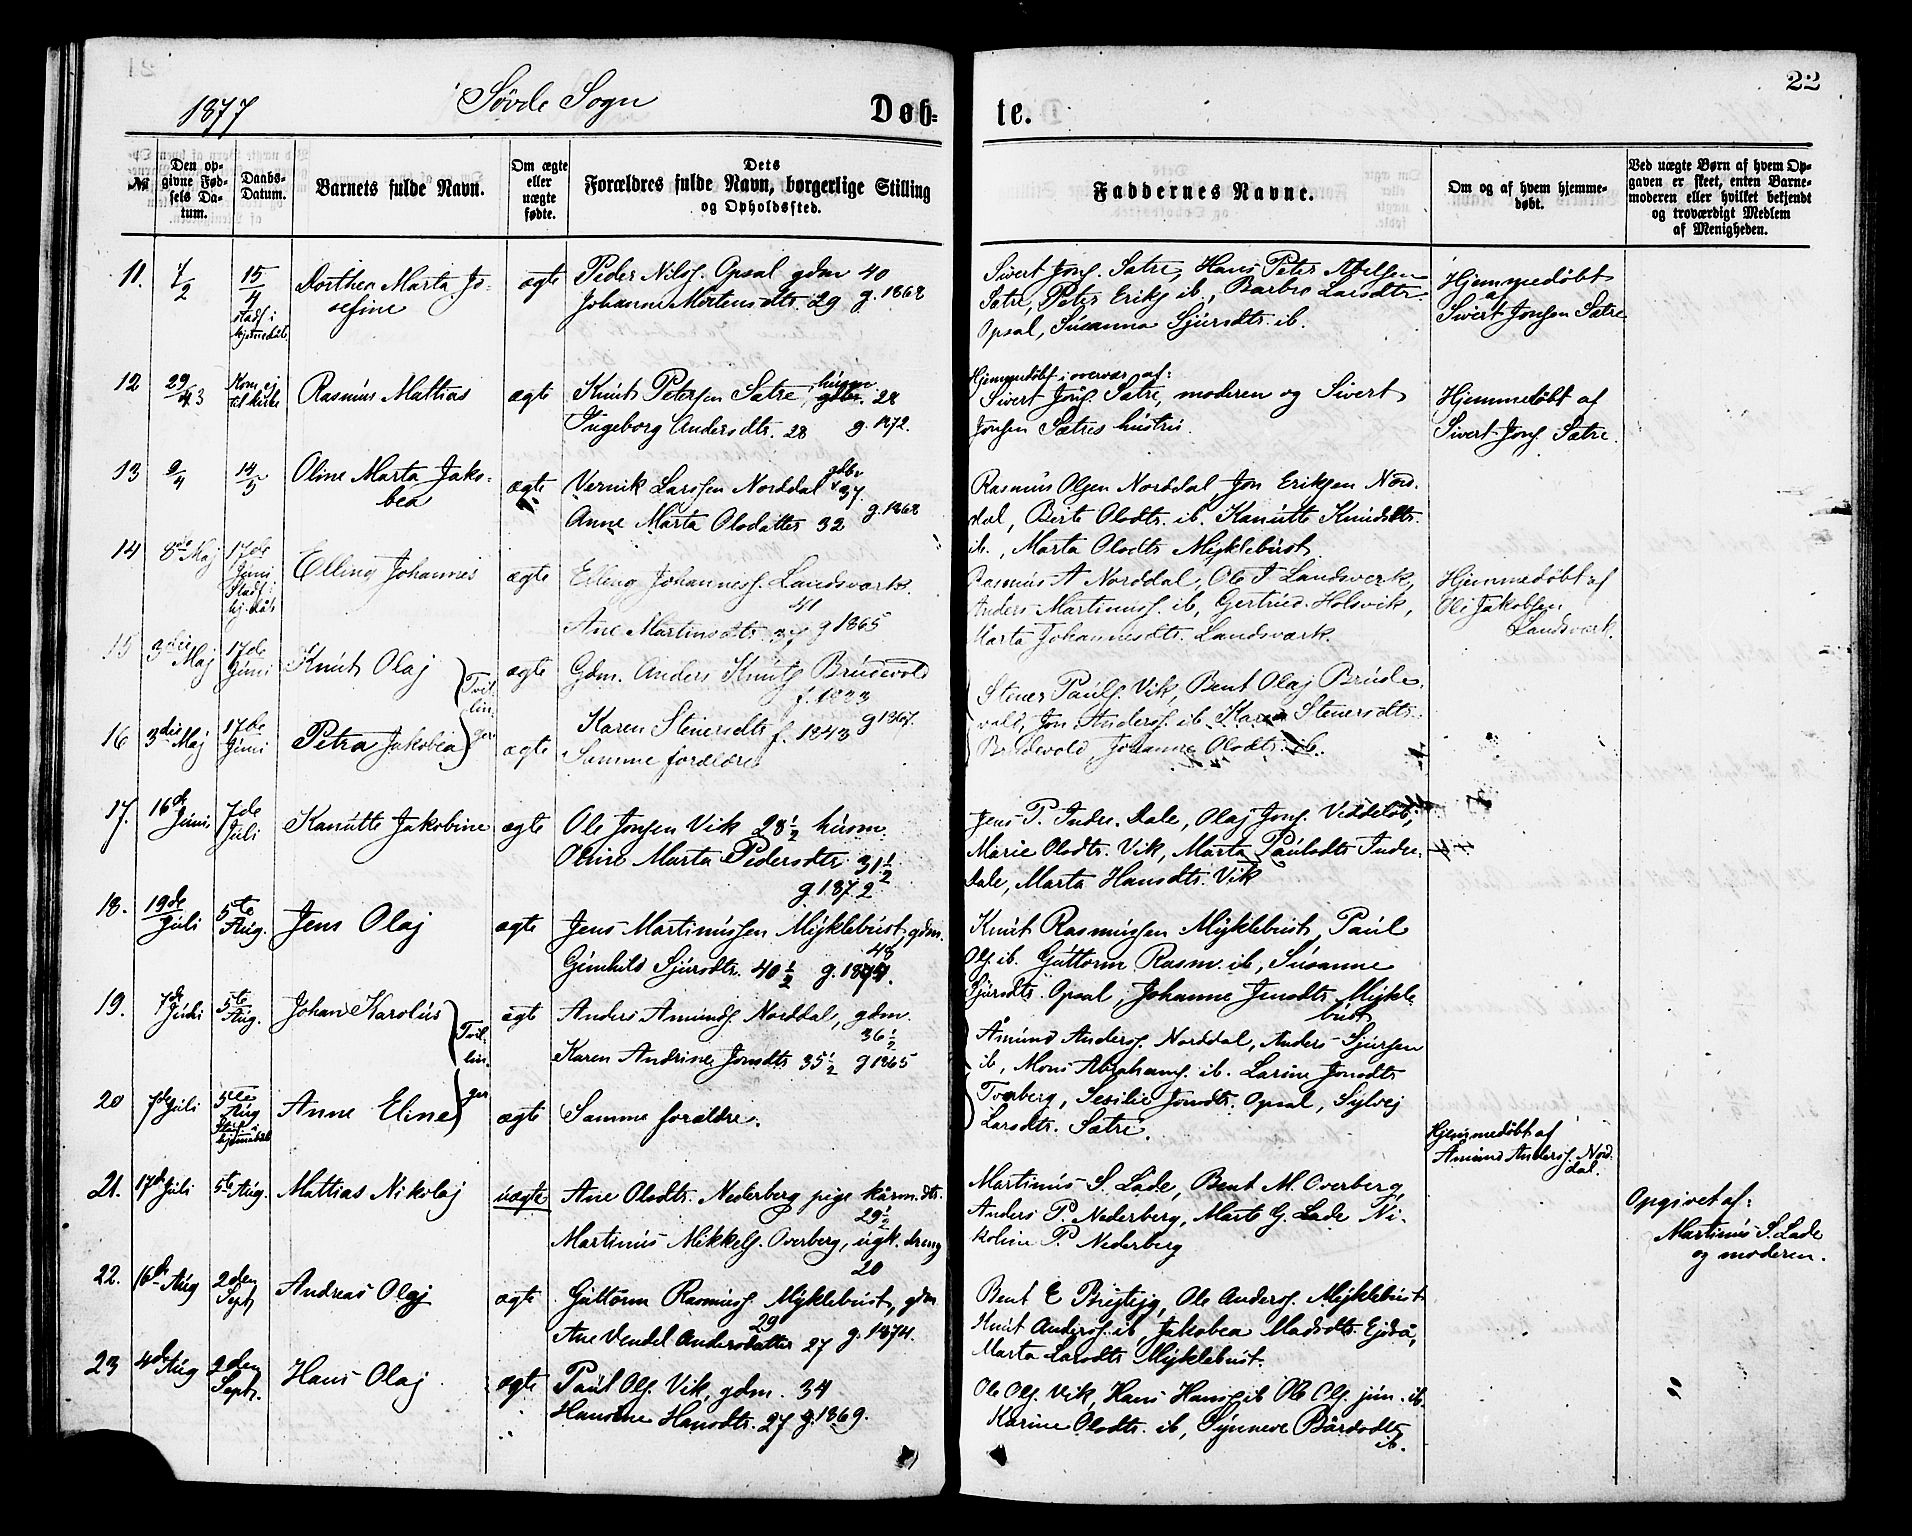 22
1877
Søvde Sogn
Døb-
te.
№
Den op-
givne Fød-
sels Da-
tum.
Daabs-
Datum.
Barnets fulde Navn.
Om ægte
eller
uægte
fødte.
Dets
Forældres fulde Navn, borgerlige Stilling
og Opholdssted.
Faddernes Navne.
Om og af hvem hjemme-
døbt.
Ved uægte Børn af hvem Op-
gaven er skeet, enten Barne-
moderen eller hvilket bekjendt
og troværdigt Medlem
af Menigheden.
11.
7/2
15/4
stadf i
hjemmedåb
Dorthea Marta Jo-
sefine
ægte
Peder Nilss. Opsal gdm 40
Johanne Mortensdtr. 29 g. 1868
Sivert Jons. Sætre, Hans Peter
Sætre, Peter Eriks ib., Barbro Larsdtr.
Opsal, Susanna Sjursdtr. ib.
Hjemmedøbt
af
Sivert Jonsen Sætre
12
29/3
Kom ej
til kirke
Rasmus Mattias
ægte
Knut Petersen Sætre, husm. 28
Ingeborg Andersdtr. 28 g. 1872.
Hjemmedøbt i overvær af:
Sivert Jons. Sætre, moderen og Sivert
Jonsen Sætres hustru.
Hjemmedøbt af
Sivert Jons. Sætre.
13
9/4
14/5
Oline Marta Jako-
bea
ægte
Vernik Larssen Norddal gdbr 37.
Anne Marta Olsdatter 32 g. 1868
Rasmus Olsen Norddal, Jon Eriksen Nord-
dal, Berte Olsdtr. ib. Kanutte Knudsdtr.
ib., Marta Olsdtr Myklebust.
14
8de Maj
17de
Juni
Stadf i
hj.dåb
Elling Johannes
ægte
Elling Johanness. Landsværk
41
Ane Martinsdtr. 37 g 1865
Rasmus A Norddal, Ole J Landsverk,
Anders Martinuss. ib, Gertrud Holsvik,
Marta Johannesdtr. Landsværk.
Hjemmedøbt af
Ole Jakobsen
Landsværk.
15
3die
Maj
17de
Juni
Knut Olaj
Tvil-
lin-
ger
ægte
Gdm. Anders Knuts Brudevold
f. 1833
Karen Steinersdtr f. 1843 g 1867.
Steiner Pauls. Vik, Bent Olaj Brude-
vold, Jon Anderss. ib. Karen Steinersdtr.
Brudevold, Johanne Olsdtr. ib.
16
3die Maj
17de
Juni
Petra Jakobea
ægte
Samme forældre
17.
16de
Juni
7de
Juli
Kanutte Jakobine
ægte
Ole Jonsen Vik 28½ husm.
Oline Marta Pedersdtr 31½
g 1872
Jens P. Indre-Dale, Olaj Jons.
Marie Olsdtr. Vik, Marta Paulsdtr Indre-
Dale, Marta Hansdtr. Vik
18.
19de
Juli
5te
Aug.
Jens Olaj
ægte
Jens Martinussen Myklebust gdm.
48
Gunhild Sjursdtr. 40½ g. 1877.
Knut Rasmussen Myklebust, Paul
Ols. ib. Guttorm Rasm. ib., Susanne
Sjursdtr. Opsal, Johanne Jensdtr. Mykle-
bust
19.
7de
Juli
5te
Aug.
Johan Karolus
Tvil-
lin-
ger
ægte
Anders Amunds. Norddal, gdm.
36½
Karen Andrine Jonsdtr 35½ g 1865
Amund Anderss. Norddal, Anders Sjursen
ib, Mons Abrahams. ib. Larine Jonsdtr
Tverberg, Sesilie Jonsdtr. Opsal, Sylvej
Larsdtr. Sætre.
20
7de Juli
5te
Aug
Stadf i
hjemmedåb
Anne Eline
ægte
Samme forældre.
Hjemmedøbt af
Amund Anderss. Nord-
dal.
21.
17de Juli
5te Aug.
Mattias Nikolaj
uægte
Ane Olsdtr. Nederberg pige kårm. dtr.
29½
Martinus Mikkels. Overberg, ugk. dreng
20
Martinus S. Lade, Bent M. Overberg,
Anders P. Nederberg, Marte G. Lade Ni-
koline P. Nederberg
Opgivet af:
Martinus S. Lade
og moderen.
22.
16de Aug
2den
Sept
Andreas Olaj
ægte
Guttorm Rasmuss. Myklebust, gdm
29
Ane Vendel Andersdatter 27 g. 1874.
Bent E Brejtejg, Ole Anderss. Myklebust
Knut Anderss. ib, Jakobea Madsdtr. Ejdså,
Marta Larsdtr Myklebust.
23
4de Aug
2den
Sept.
Hans Olaj
ægte
Paul Ols. Vik, gdm. 34
Hansine Hansdtr. 27 g. 1869.
Ole Ols Vik, Hans Hans. ib Ole Ols. jun. ib.
Karine Olsdtr. ib, Synneve Bårdsdtr
ib.